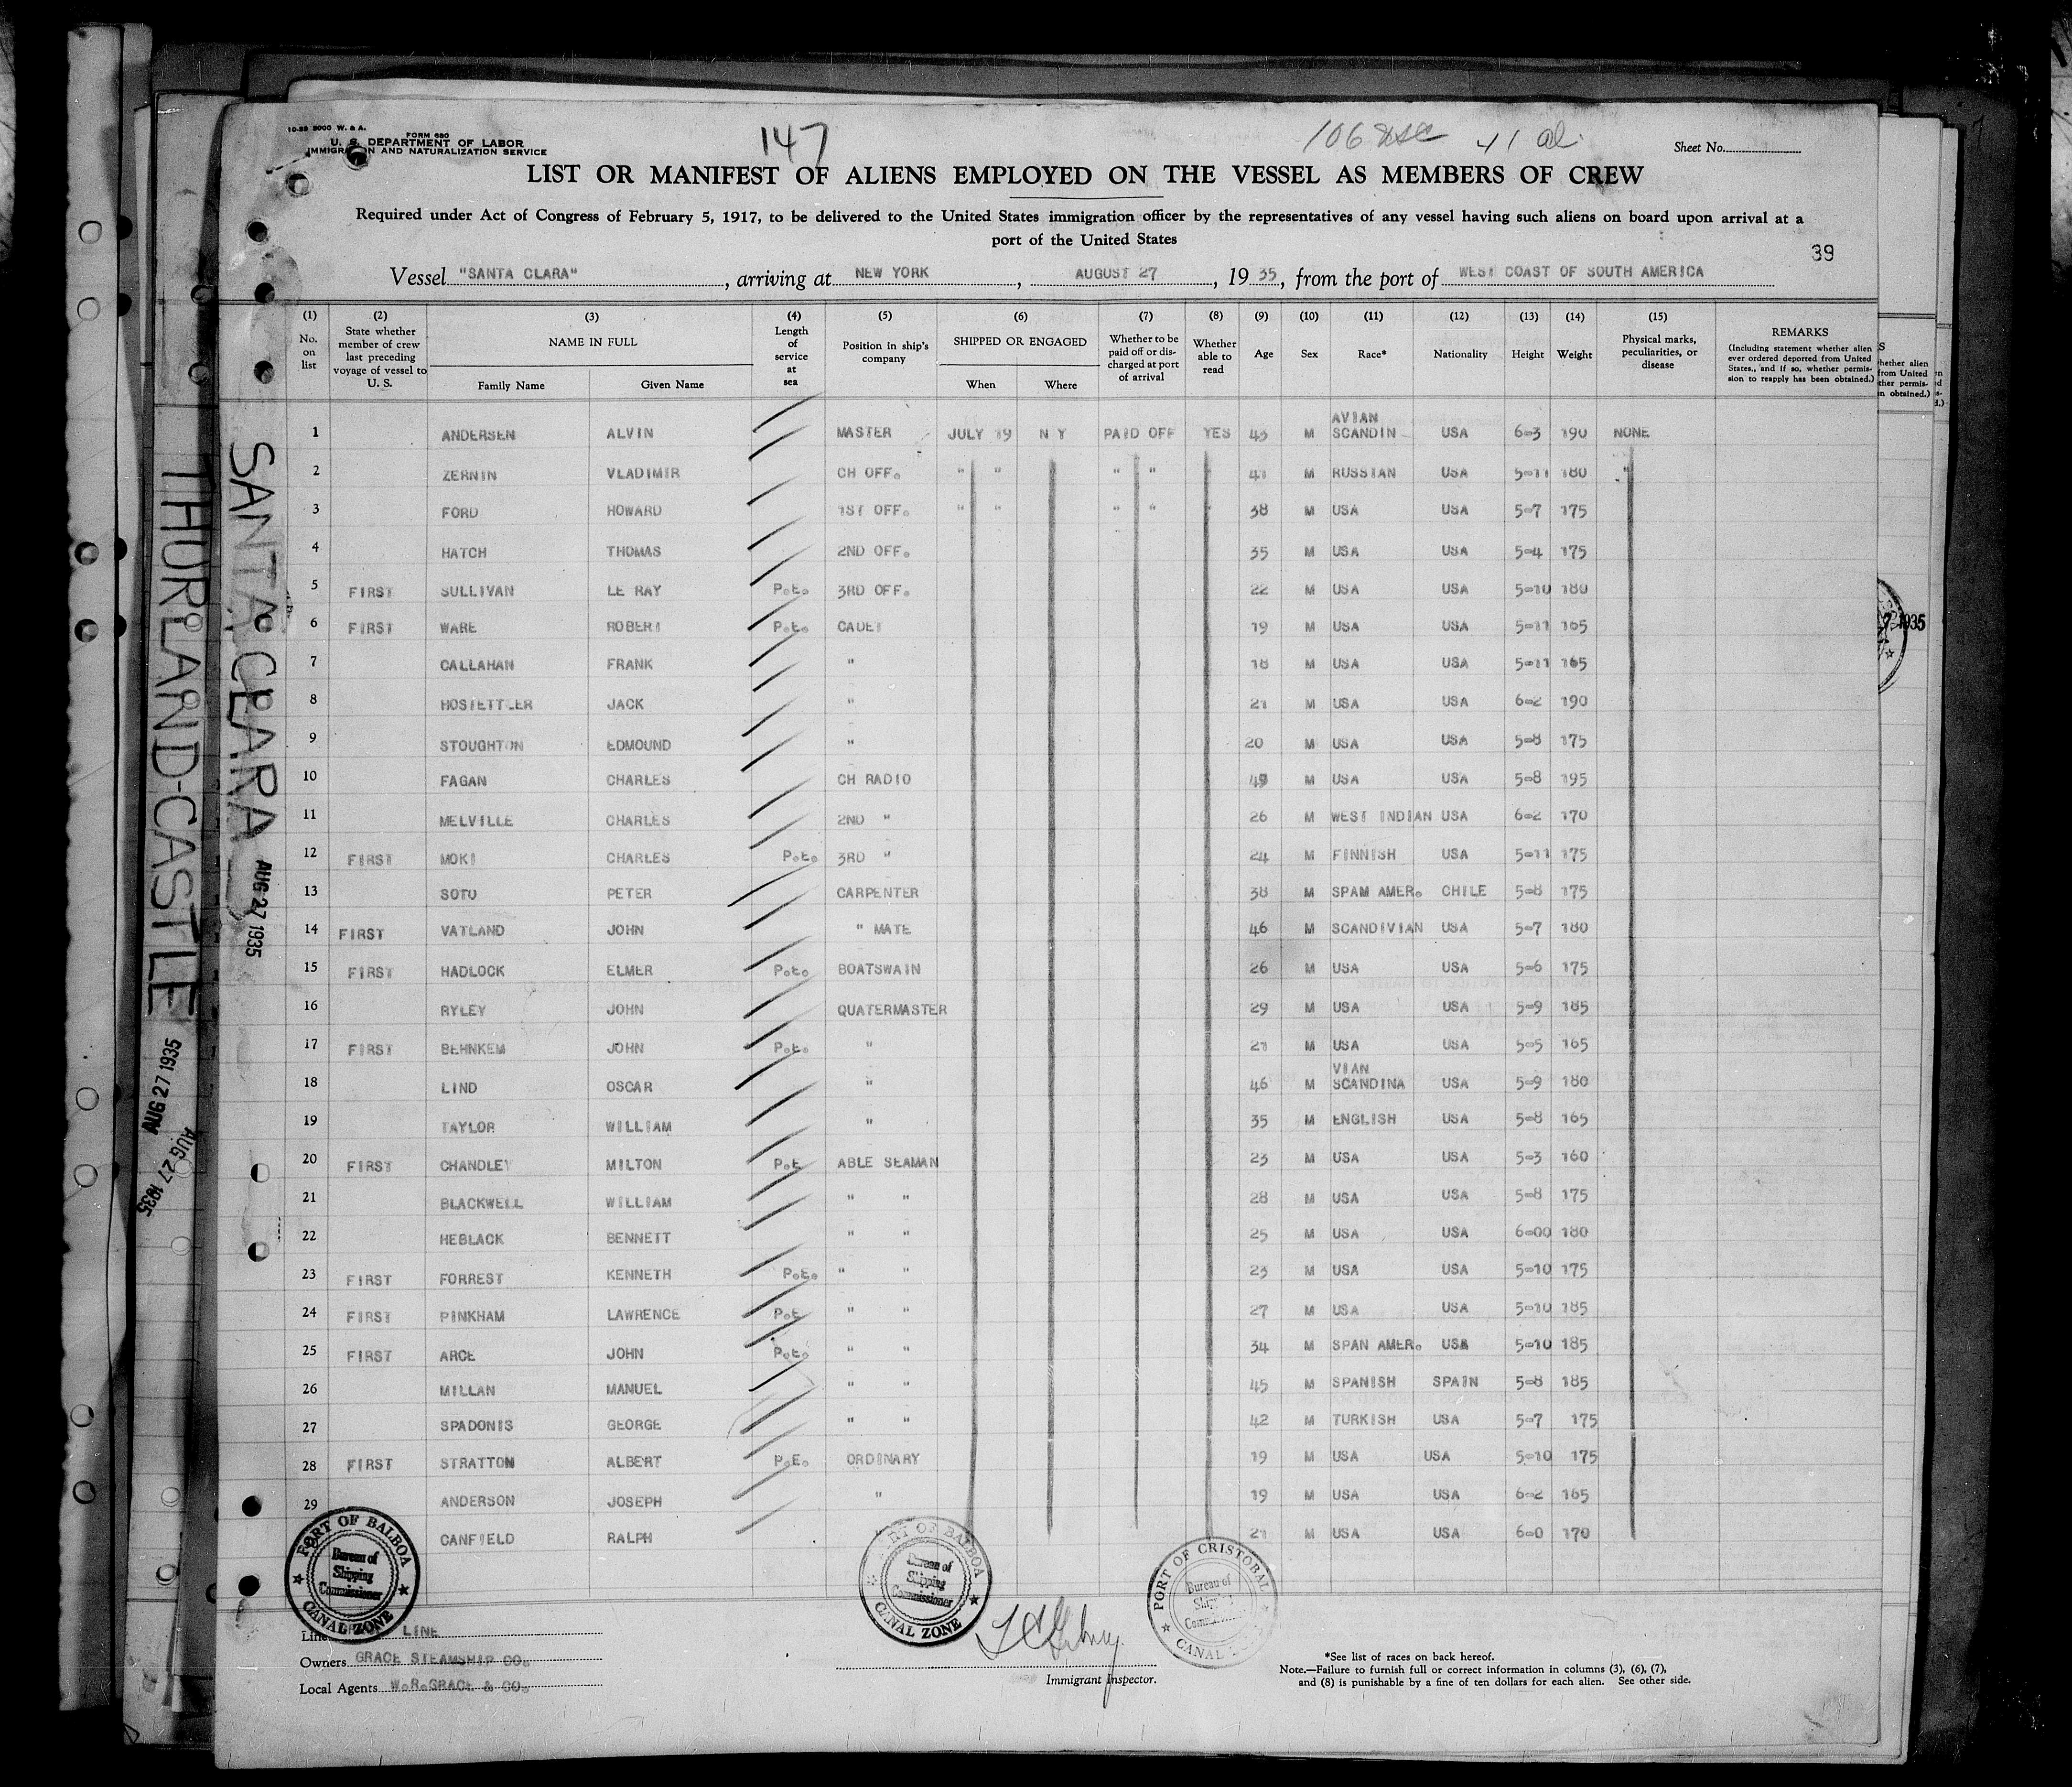 10-33 5000 W. & A.
FORM 680
U. S. DEPARTMENT OF LABOR
IMMIGRATION AND NATURALIZATION SERVICE
147
106 41 al
Sheet No.
LIST OR MANIFEST OF ALIENS EMPLOYED ON THE VESSEL AS MEMBERS OF CREW
Required under Act of Congress of February 5, 1917, to be delivered to the United States immigration officer by the representatives of any vessel having such aliens on board upon arrival at a
port of the United States
39
Vessel "SANTA CLARA", arriving at NEW YORK, AUGUST 27, 1935, from the port of WEST COAST OF SOUTH AMERICA
(1) No. on list (2) State whether member of crew last preceding voyage of vessel to U. S. (3) NAME IN FULL Family Name Given Name (4) Length of service at sea (5) Position in ship's company (6) SHIPPED OR ENGAGED When Where (7) Whether to be paid off or discharged at port of arrival (8) Whether able to read (9) Age (10) Sex (11) Race* (12) Nationality (13) Height (14) Weight (15) Physical marks, peculiarities, or disease REMARKS (Including statement whether alien ever ordered deported from United States, and if so, whether permission to reapply has been obtained.)
1 ANDERSEN ALVIN MASTER JULY 19 N Y PAID OFF YES 43 M SCANDINAVIAN USA 6-3 190 NONE
2 ZERNIN VLADIMIR CH OFF. " " " " 41 M RUSSIAN USA 5-11 180 "
3 FORD HOWARD 1ST OFF. " " " " 38 M USA USA 5-7 175
4 HATCH THOMAS 2ND OFF. 35 M USA USA 5-4 175
5 FIRST SULLIVAN LE RAY P.E. 3RD OFF. 22 M USA USA 5-10 180
6 FIRST WARE ROBERT P.E. CADET 19 M USA USA 5-11 165
7 CALLAHAN FRANK " 18 M USA USA 5-11 165
8 HOSTETTLER JACK " 21 M USA USA 6-2 190
9 STOUGHTON EDMOUND " 20 M USA USA 5-8 175
10 FAGAN CHARLES CH RADIO 49 M USA USA 5-8 195
11 MELVILLE CHARLES 2ND " 26 M WEST INDIAN USA 6-2 170
12 FIRST MOKI CHARLES P.E. 3RD " 24 M FINNISH USA 5-11 175
13 SOTO PETER CARPENTER 38 M SPAM AMER. CHILE 5-8 175
14 FIRST VATLAND JOHN " MATE 46 M SCANDIVIAN USA 5-7 180
15 FIRST HADLOCK ELMER P.E. BOATSWAIN 26 M USA USA 5-6 175
16 RYLEY JOHN QUATERMASTER 29 M USA USA 5-9 185
17 FIRST BEHNKEM JOHN P.E. " 21 M USA USA 5-5 165
18 LIND OSCAR " 46 M SCANDINAVIAN USA 5-9 180
19 TAYLOR WILLIAM " 35 M ENGLISH USA 5-8 165
20 FIRST CHANDLEY MILTON P.E. ABLE SEAMAN 23 M USA USA 5-3 160
21 BLACKWELL WILLIAM " " 28 M USA USA 5-8 175
22 HEBLACK BENNETT " " 25 M USA USA 6-00 180
23 FIRST FORREST KENNETH P.E. " " 23 M USA USA 5-10 175
24 FIRST PINKHAM LAWRENCE P.E. " " 27 M USA USA 5-10 185
25 FIRST ARCE JOHN P.E. " " 34 M SPAN AMER. USA 5-10 185
26 MILLAN MANUEL " " 45 M SPANISH SPAIN 5-8 185
27 SPADONIS GEORGE " " 42 M TURKISH USA 5-7 175
28 FIRST STRATTON ALBERT P.E. ORDINARY 19 M USA USA 5-10 175
29 ANDERSON JOSEPH " 19 M USA USA 6-2 165
CANFIELD RALPH 21 M USA USA 6-0 170
PORT OF BALBOA Bureau of Shipping Commissioner CANAL ZONE
PORT OF BALBOA Bureau of Shipping Commissioner CANAL ZONE
PORT OF CRISTOBAL Bureau of Shipping Commissioner CANAL ZONE
Line LINE
Owners GRACE STEAMSHIP CO.
Local Agents W.R.GRACE & CO.
Immigrant Inspector.
*See list of races on back hereof.
Note.—Failure to furnish full or correct information in columns (3), (6), (7),
and (8) is punishable by a fine of ten dollars for each alien. See other side.
SANTA CLARA
AUG 27 1935
THURLAND-CASTLE
AUG 27 1935
AUG 27 1935
1935